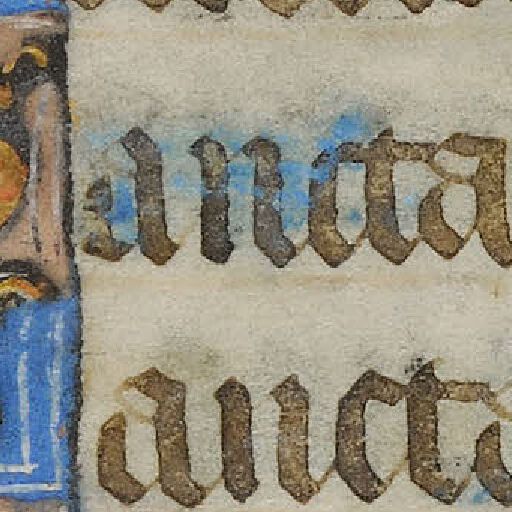 ancta
ancta